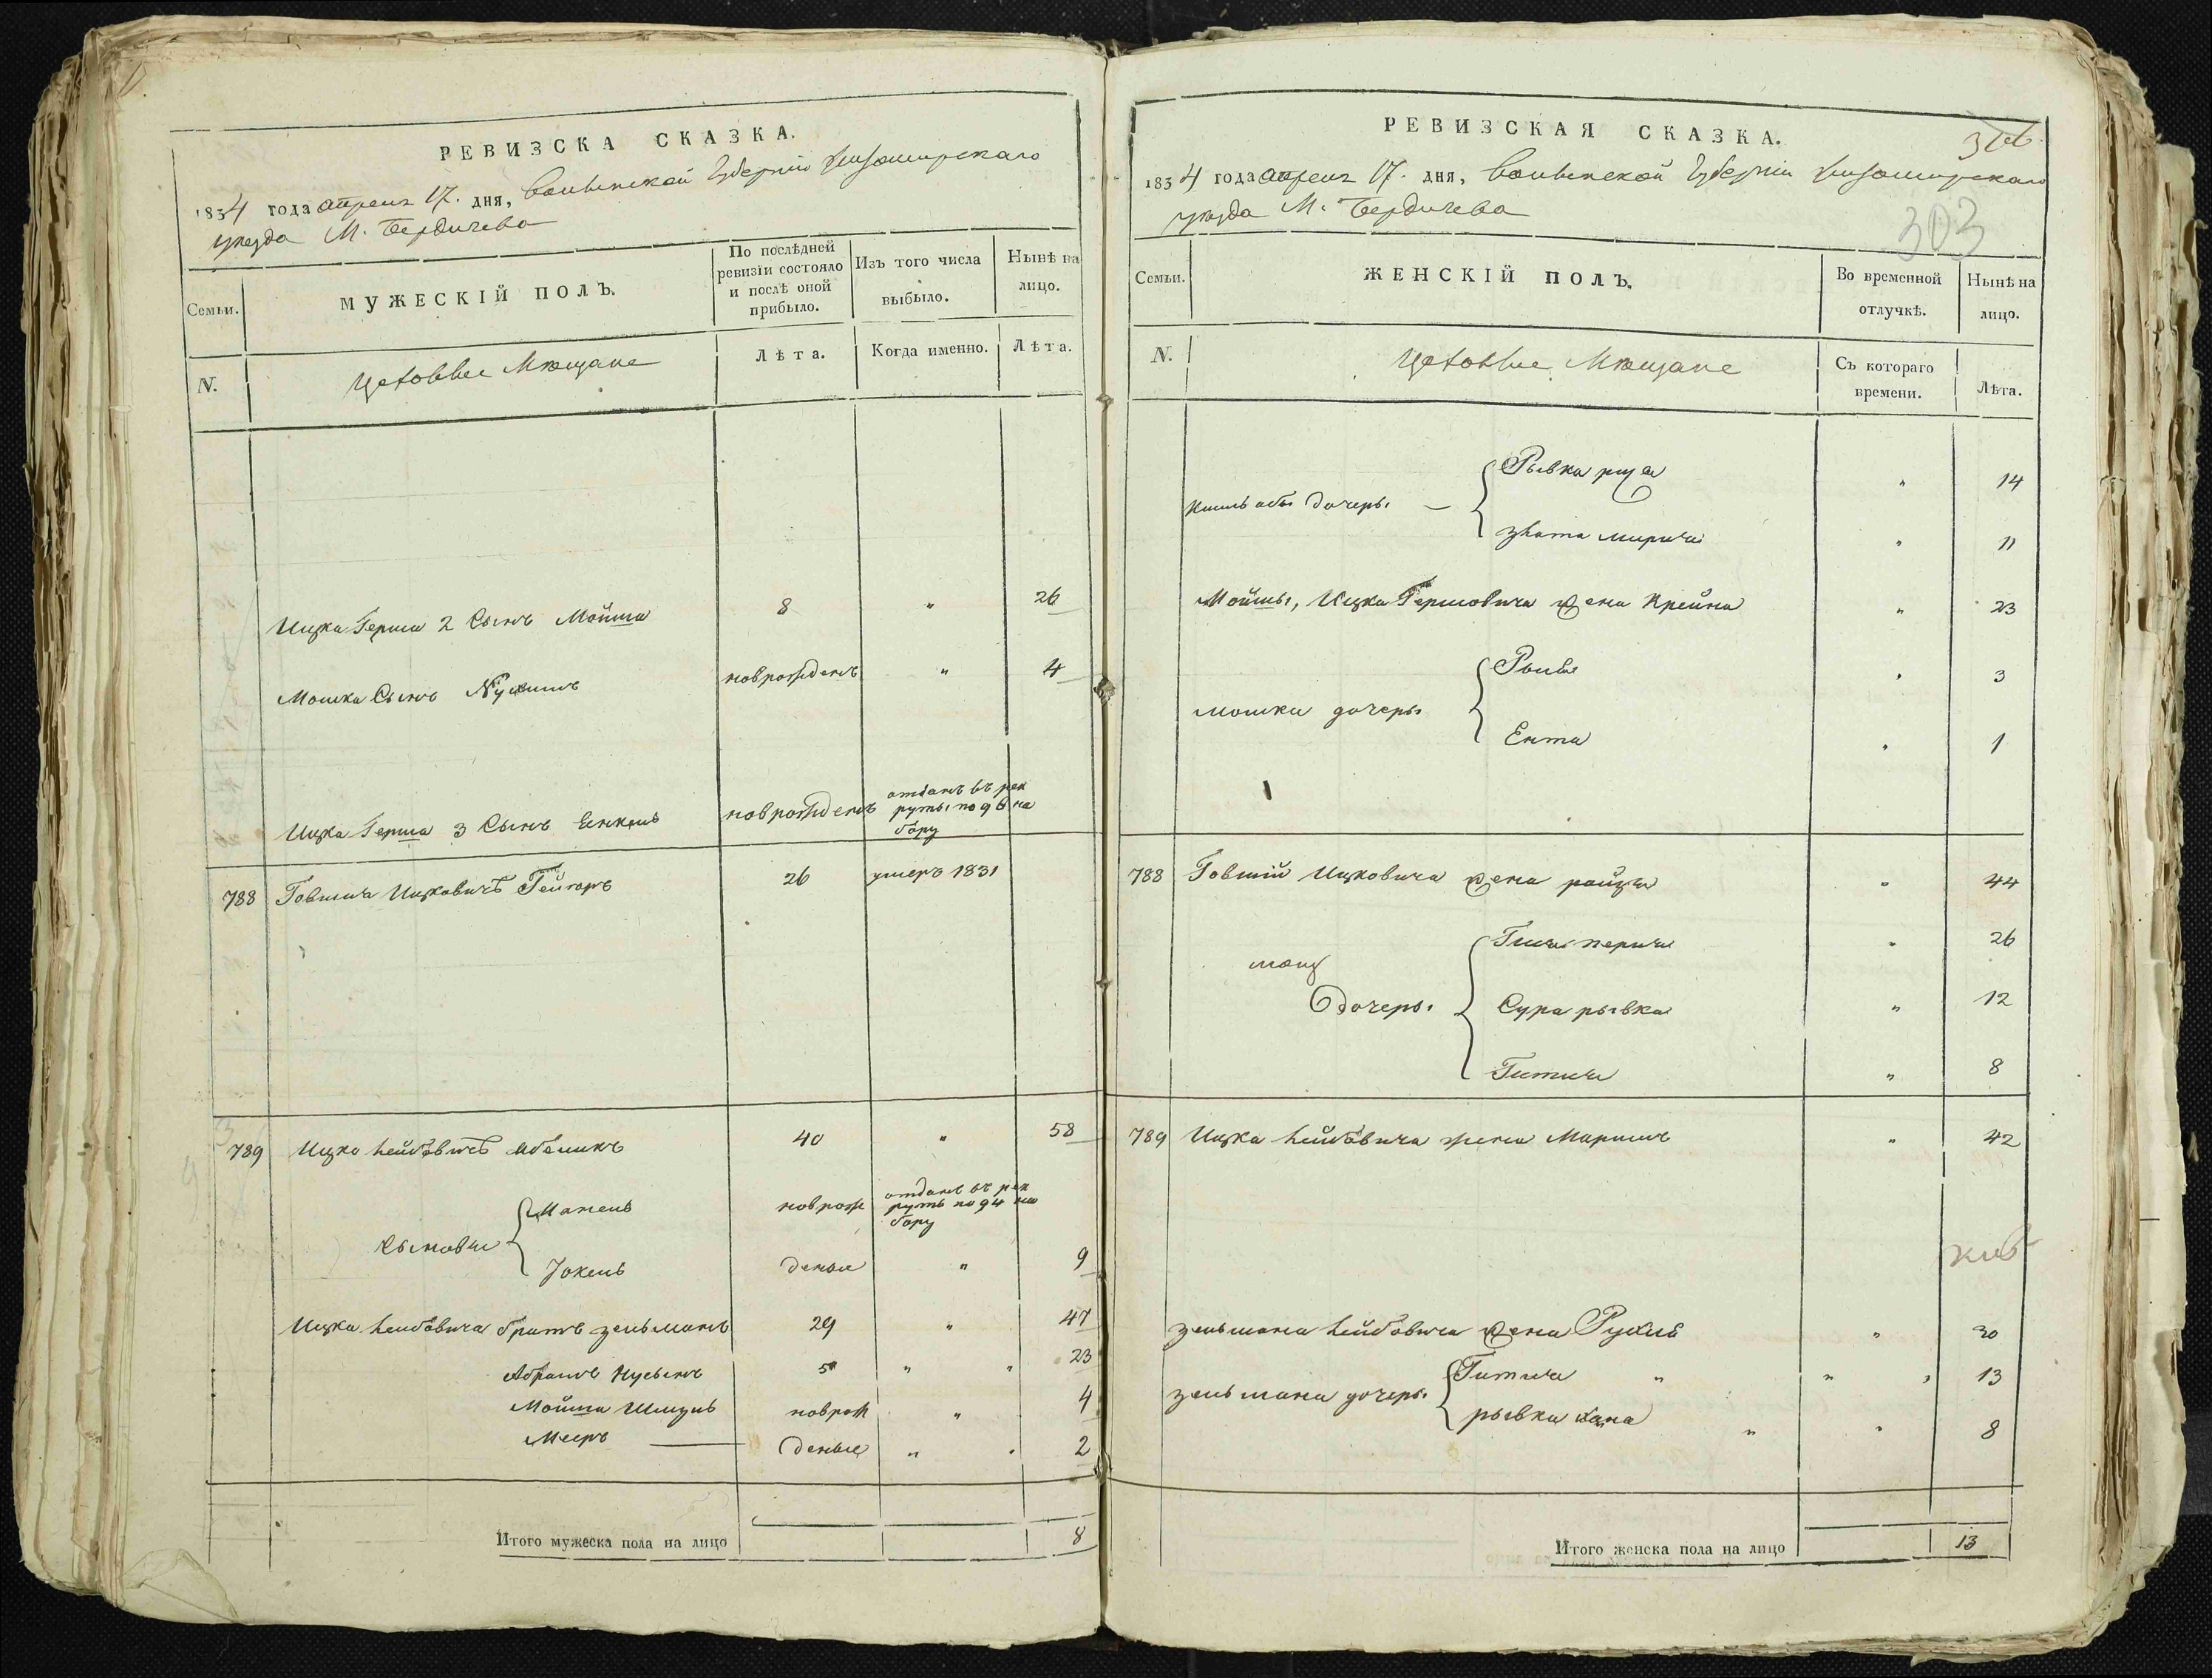 РЕВИЗСКА СКАЗКА.
1834 года апреля 17. дня, Волынской Губернии Житомирскаго
уезда М. Бердичева
Семьи.
МУЖЕСКІЙ ПОЛЪ.
По послѣдней
ревизіи состояло
и послѣ оной
прибыло.
Изъ того числа
выбыло.
Нынѣ на
лицо.
N.
Цеховые Мѣщане
Лѣта.
Когда именно.
Лѣта.
Ицка Герша 2 Сынъ Мойша 8 " 26
Мошка Сынъ новрожденъ " 4
Ицка Герша 3 Сынъ Енкель новрожденъ
отданъ въ рек
руты по 96 на
бору
788 Говшия Ицковичъ 26 умеръ 1831
789 Ицко Лейбовичъ 40 " 58
Сыновья
новрож
отданъ въ рек
рутъ по 94 на
бору
Іокель деные " 9
Ицка Лейбовича братъ Зельманъ 29 " 47
Абрамъ Нусынъ 5 " " 23
Мойша Шмуль новрож " 4
Мееръ деные " " 2
Итого мужеска пола на лицо 8
РЕВИЗСКАЯ СКАЗКА.
1834 года апреля 17. дня, Волынской Губерніи Житомирскаго
уезда М. Бердичева
303
Семьи.
ЖЕНСКІЙ ПОЛЪ.
Во временной
отлучкѣ.
Нынѣ на
лицо.
N.
Цеховые Мѣщане
Съ котораго
времени.
Лѣта.
Рывка " 14
дочеры
Злота " 11
Мойшы, Ицка Гершовича жена Крейна " 23
" 3
Мошки дочеры
Ента " 1
788 Говшій Ицковича жена райзя " 44
" 26
дочеры Сура рывка " 12
Гитля " 8
789 Ицка Лейбовича жена " 42
Зельмана Лейбовича жена Рухля " 30
Гитля " " " 13
Зельмана дочеры
рывка хана " " 8
Итого женска пола на лицо 13